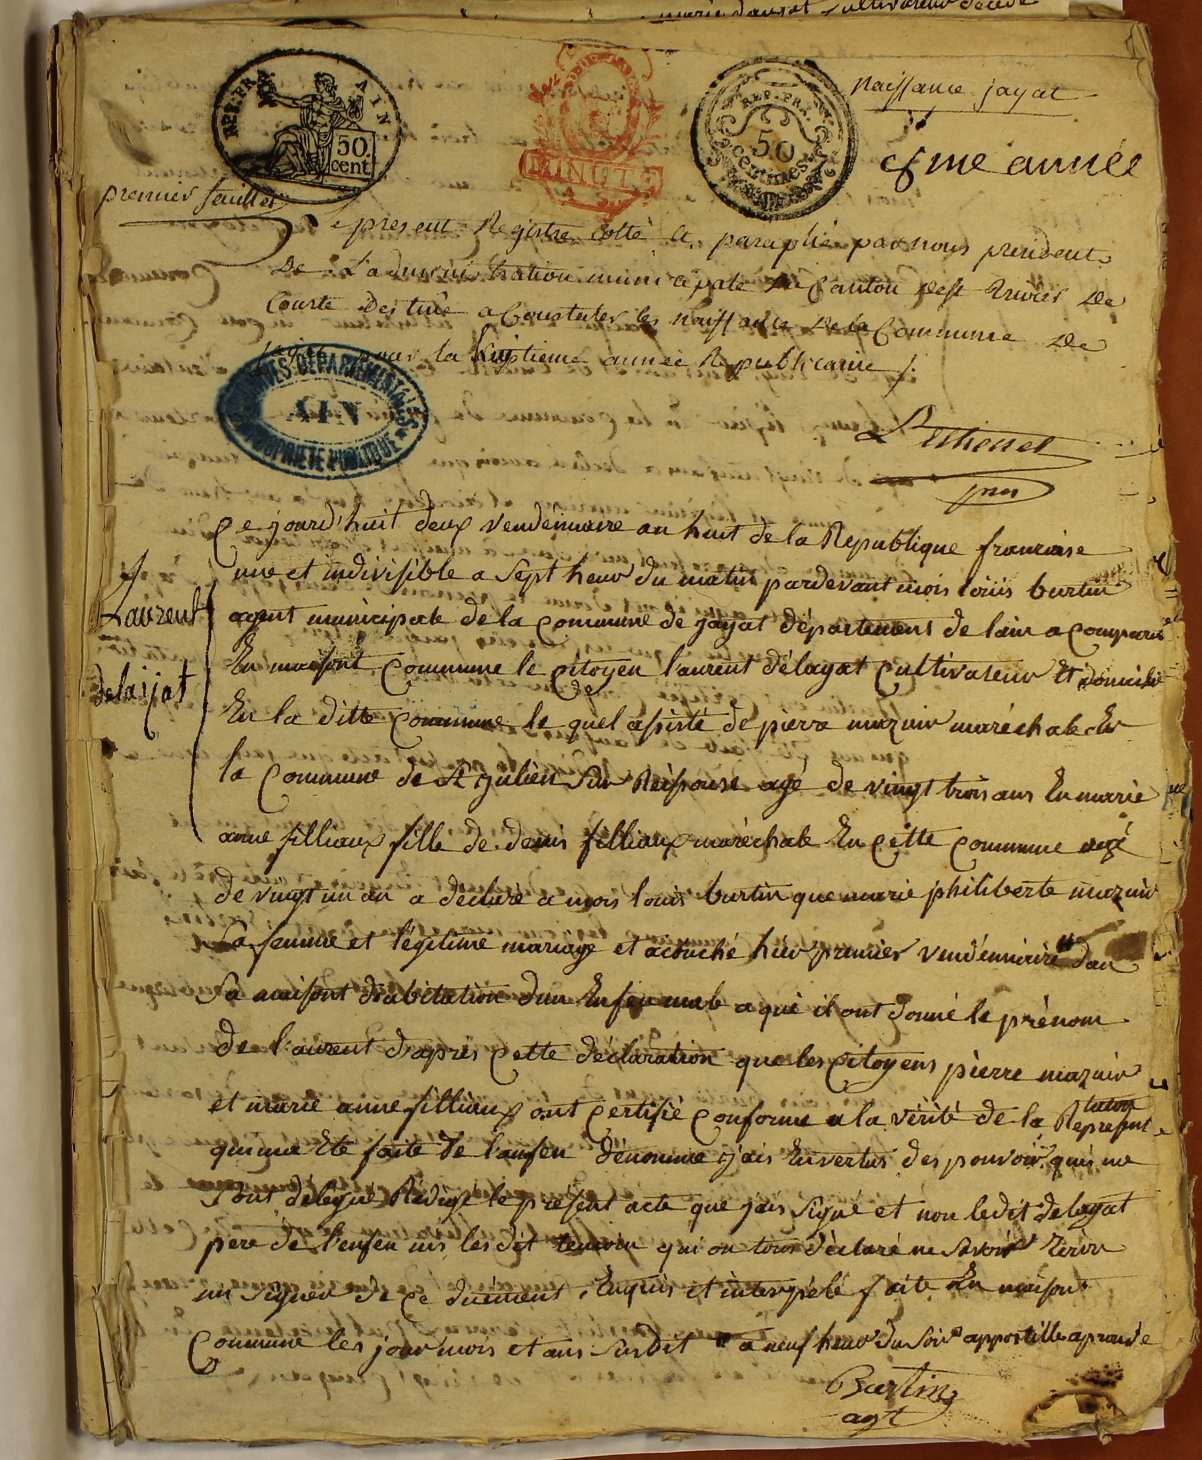 marie dausat cultivateur
REP. FRA. AIN
50 cent.
MINUTE
REP. FRA.
50 centimes
naissance jayat
8me année
premier feuillet
Le present Registre cotté et paraphé par nous president
De L'administration municipale De Canton de st trivier De
Courte Destiné a Constater les naissances De la Commune De
jayat pour la huistieme année Republicaine /.
ARCHIVES DÉPARTEMENTALES
AIN
PROPRIÉTÉ PUBLIQUE
Pethenet
pres
Ce jourd'huit deux vendemiaire an huit de la Republique francaise
une et indivisible a sept heur du matin pardevant mois loüis burtin
Laurent
agent municipale de la commune de jayat département de lain a comparu
En maisont commune le citoyen laurent délayat cultivateur Et domicilié
delaijat
En la ditte commune le quel asisté de pierre mazuir maréchale En
la Commune de St julien sur Reissouse agé de vingt trois ans En marie
anne filliaux fille de denis filliaux maréchale En cette commune agé
de vingt un an a déclaré a mois louis burtin que marie philiberte mazuir
sa femme et légitime mariage et acouché hier premier vendémiaire dan
sa maisont dabitation dun Enfen male a qui il ont donné le prénom
de laurent daprès cette déclaration que les citoyens pierre mazuir
et marie anne filliaux ont certifié conforme a la vérité de la Represent
tation
qui me Eté faite de lanfen dénommé jais En vertus des pouvoir qui me
sont délégué Rédigé le présent acte que jais signé et non ledit delayat
pere de l'enfen nis les dit temoin qui on tous déclaré ne savoir Ecrire
ni signer de ce duement Enquis et interpélé fait En maisont
commune les jour mois et ans susdit a neuf heur du soir appostille aprouvé
Burtin
agt